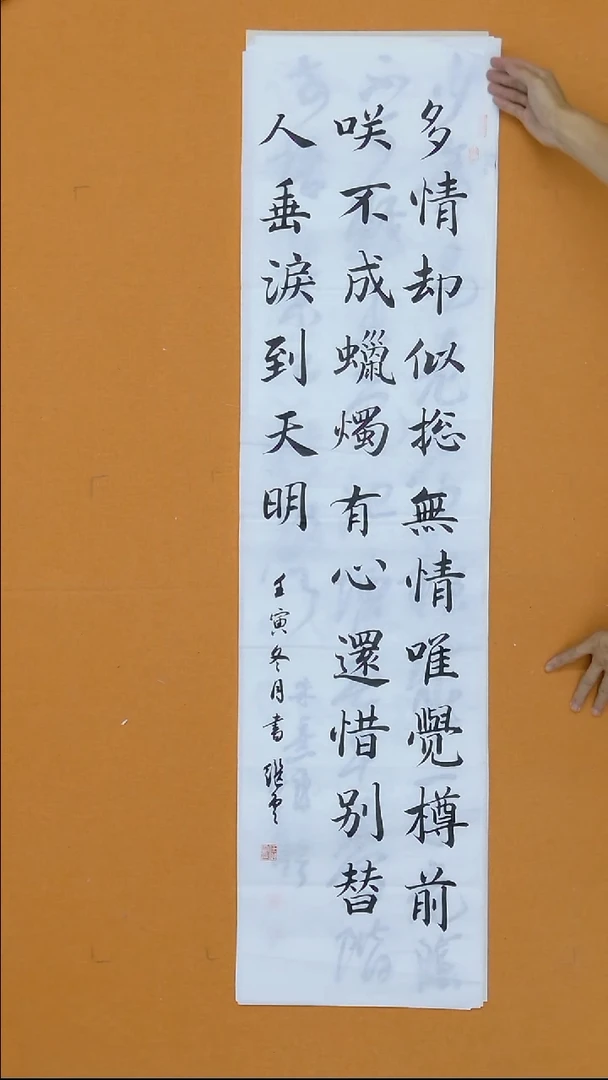 多情却似捴無情唯覺樽前
咲不成蠟燭有心還惜別替
人垂淚到天明
壬寅冬月書